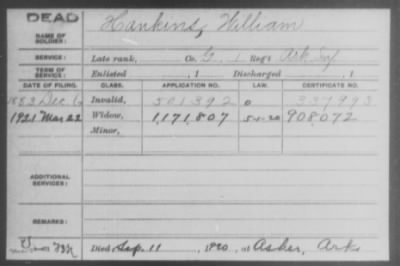 DEAD
NAME OF SOLDIER: Hankins, William
SERVICE: Late rank, Co. G, 1 Reg't Ark Inf
TERM OF SERVICE: Enlisted , 1 Discharged , 1
DATE OF FILING. CLASS. APPLICATION NO. LAW. CERTIFICATE NO.
1883 Dec 6 Invalid, 501392 0 337993
1921 Mar 22 Widow, 1,171,807 908072
Minor,
ADDITIONAL SERVICES:
REMARKS:
Died Sep. 11, 1920, at Asher, Ark